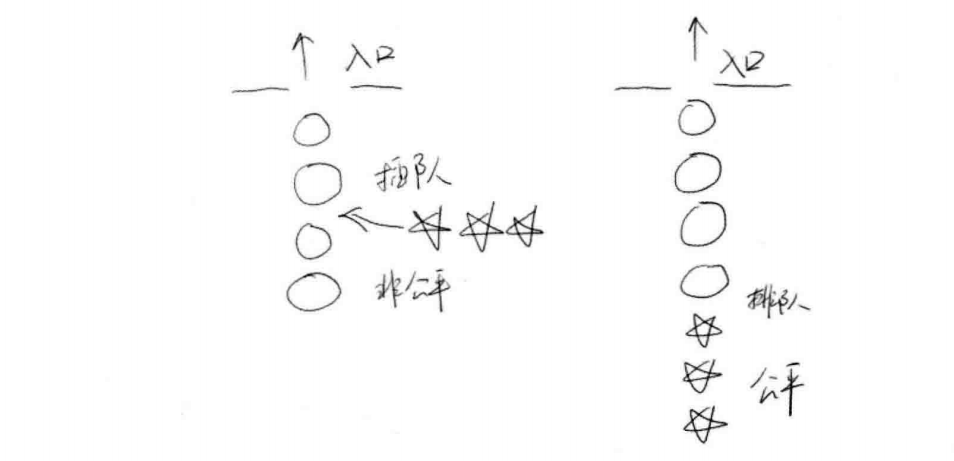 入口
插队
非公平
入口
排队
公平